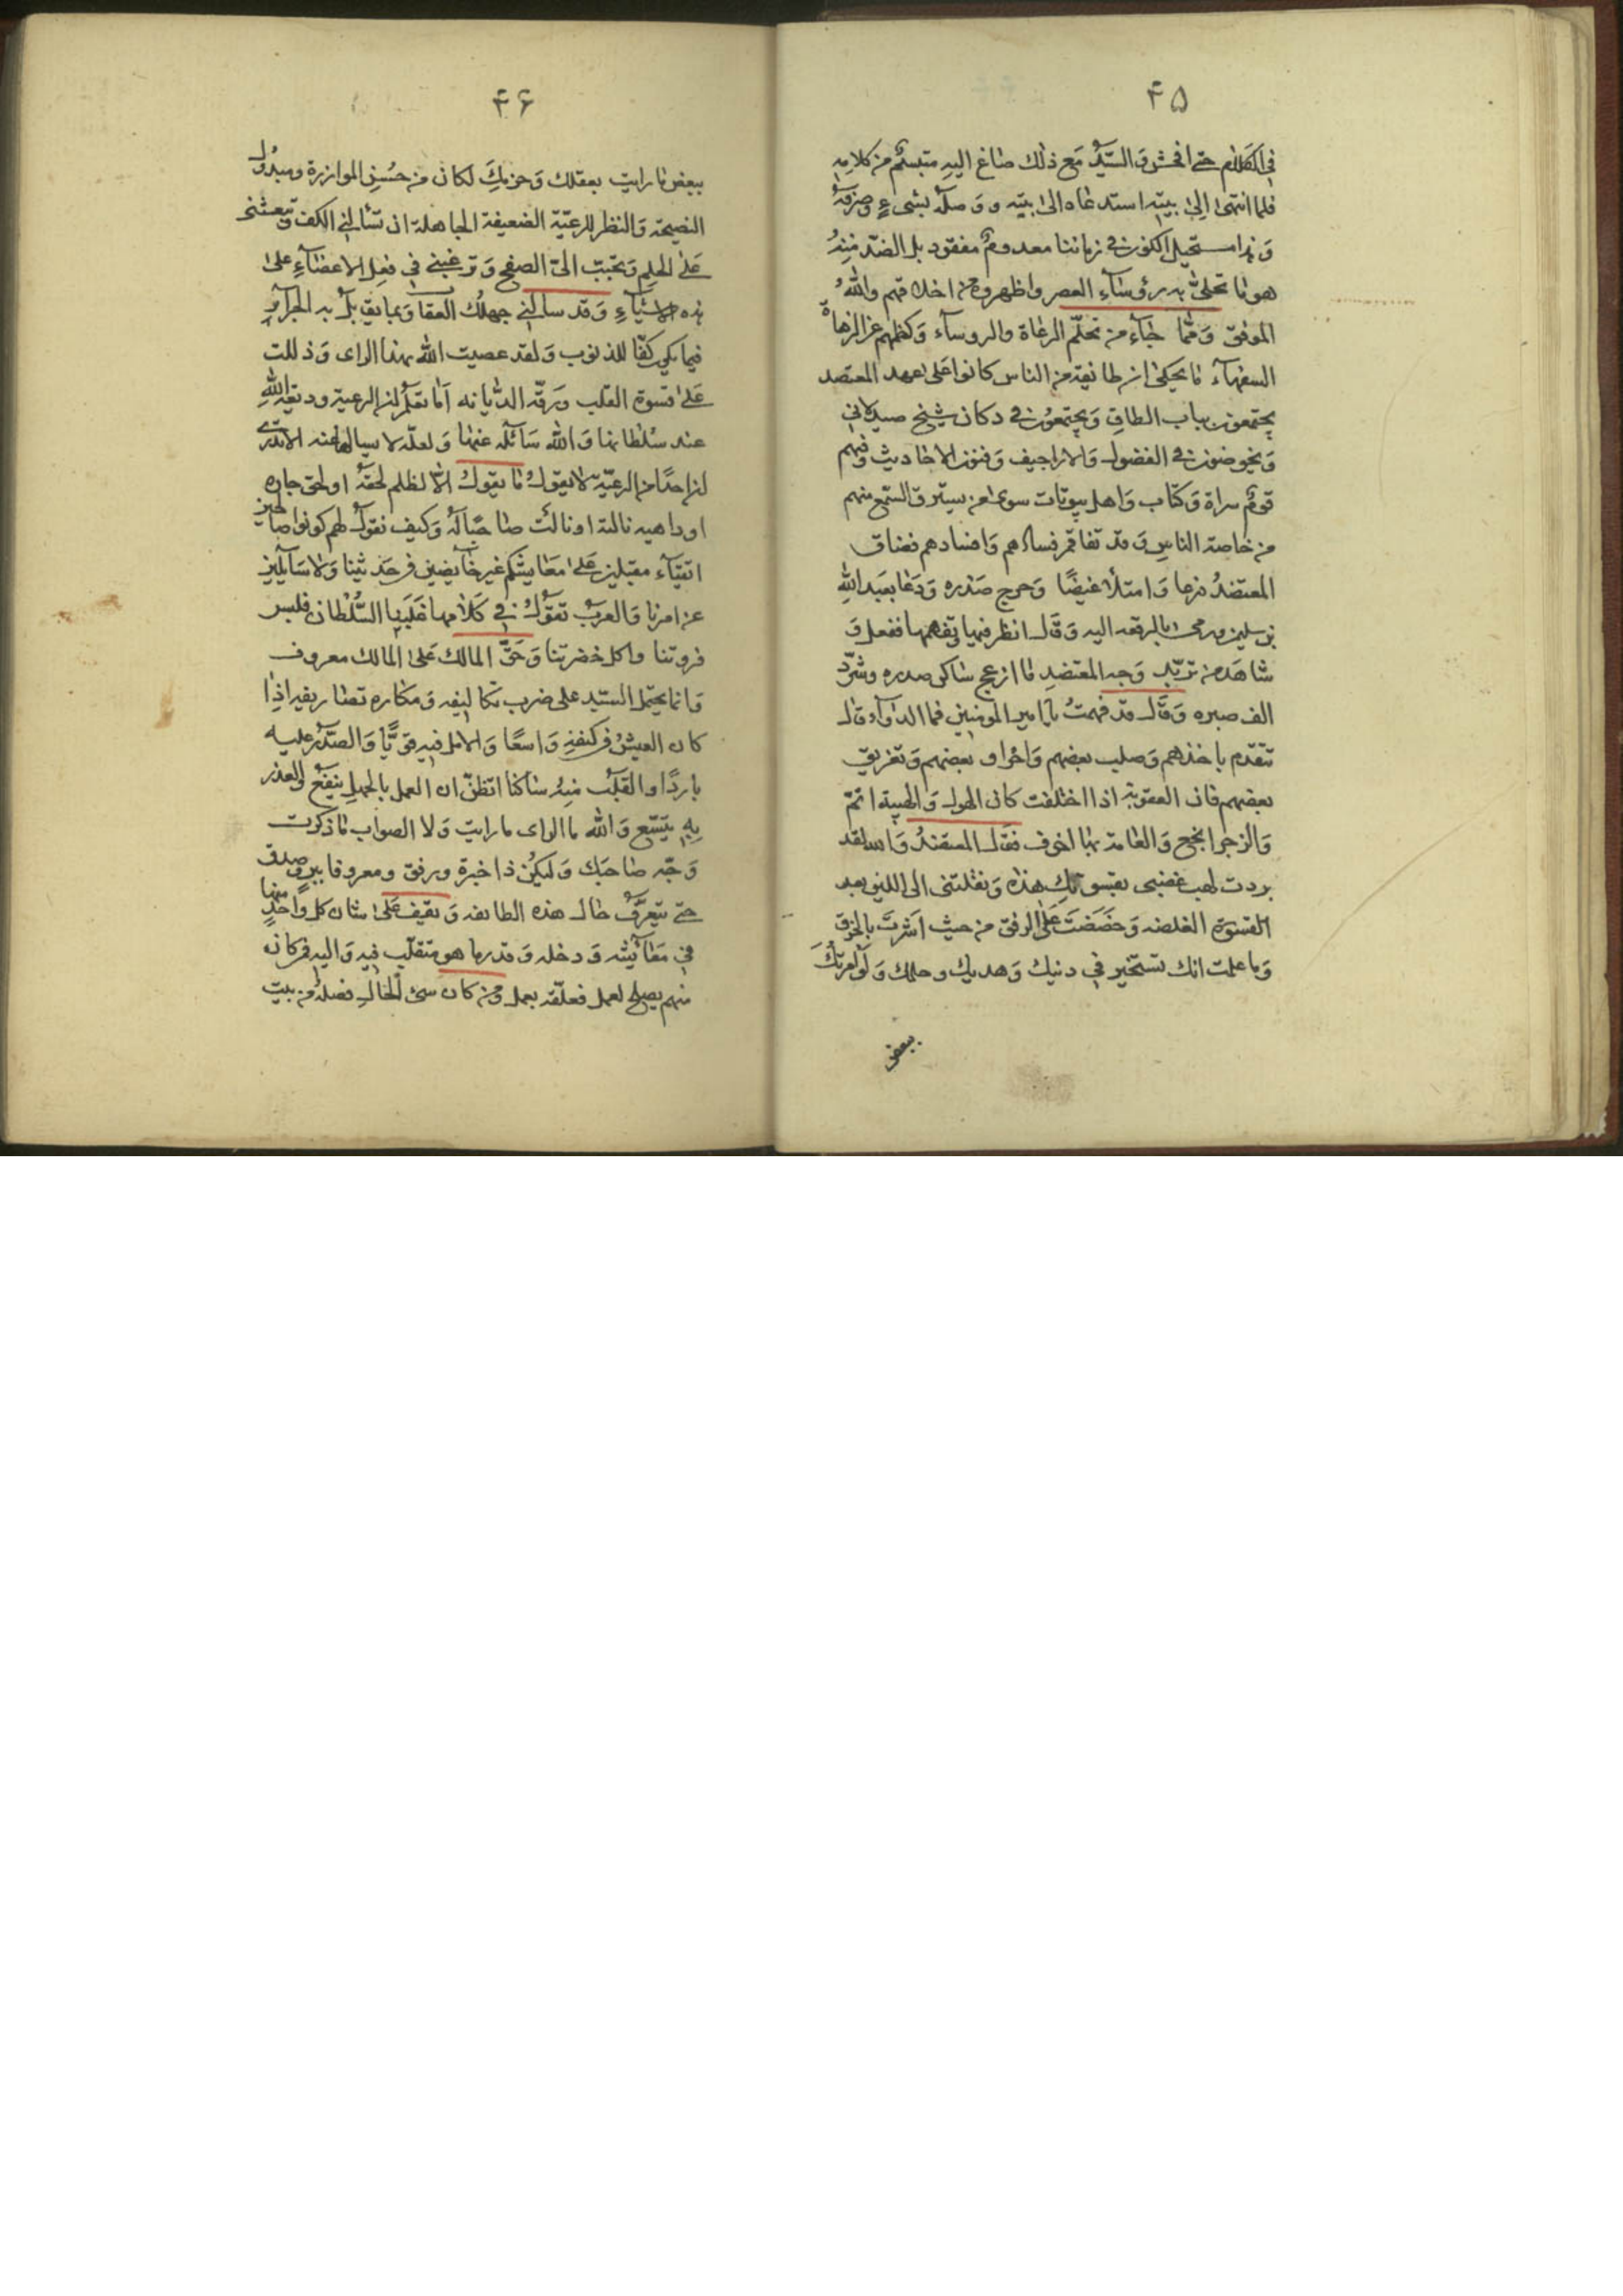 ۴۵
في الكلام حتى افحش والسّيّد مَع ذلك صاغ اليهِ متبسّم من كلامِه
فلما انتهى الى بيته استدعاه الى بيته ووصله بشىءٍ وصرفهُ
وَهذا مستحيل الكون في زماننا معدومٌ مفقود بل الضدّ منهُ
هو ما تحلىّ به رؤسآءِ العصر واظهروه من اخلاقهم واللهُ
الموفق وَممّا جآءَ من تحلّم الرعاة والروسآء وَكظمهم عن
السفهآء ما يحكى ان طائفة من الناس كانوا عَلى عهد المعتضد
يجتمعون بباب الطاقِ وَيجتمعون في دكان شيخ صيدلاني
وَيخوضون في الفضول وَالاراجيف وَفنون الاحاديث وفيهم
قومٌ سراة وَكتّاب وَاهل بيوتات سوى من يسترق السّمع منهم
من خاصة الناسِ وَقد تفاقم فسادهم وَافسادهم فضاق
المعتضدُ ذرعا وَامتلأ غيضًا وَحرج صَدره وَدَعا بعَبد اللهِ
بن سليمن ورمى بالرقعه اليه وَقال انظر فيها وتفهّمها ففعل وَ
شاهَد من تربّد وَجه المعتضدِ ما ازعج ساكن صدره وشرّد
الف صبره وَقال قد فهمتُ يا امير المومنين فما الدوآء قال
تتقدّم باخذهم وَصلب بعضهم وَاحراق بعضهم وَتغريق
بعضهم فان العقوبة اذا اختلفت كان الهول وَالهيبة اتمّ
وَالزجر انجع وَالعامة بها اخوف فقال المعتضدُ وَالله لقد
بردت لهب غضبى بقسوتكِ هذه وَنقلتنى الى اللين بعد
القسوة الغلضه وَحَضَضتَ عَلى الرفق من حيث اشرتَ بالخرق
وَما علمت انك تستخير في دينك وَهديك وحلمك وَلو امرتُكَ
ببعض
۴۶
ببعض ما رايت بعقلك وَحزمك لكان من حُسنِ الموازرة ومبذول
النصيحة وَالنظر للرعيّة الضعيفة الجاهلة ان تسألنى الكف وَتبعثنى
عَلى الحلمِ وَتحبّب الىّ الصفح وَترغبني في فعل الاغضآءِ على
هذه الاشيآءِ وَقد سآلني جهلُك العقاب وَبما يقابل به الجرآئر
فيما يكن كفّا للذنوب وَلقد عصيت الله بهذا الراى وَذللت
عَلى قسوة القلب وَرقّة الدّيانه اَما تعلم ان الرعية وديعة اللهِ
عند سُلطانها وَالله سَائله عنها وَلعلّه لا يساله عنه الا
ان احدًا من الرعيّة لا يقول ما يقولُ الاّ لظلم لحقه او لحق جاره
او داهيه نالته او نالت صاحبًا له وَكيف نقول لهم كونوا صالحين
اتقيآء مقبلين عَلى مَعايشكم غير خآئضين في حَديثنا وَلا سَآئلين
عن امرنا وَالعرَب تقولُ في كَلامها غَلَبنا السُّلطان فلبس
فروتنا واكل خضرتنا وَحَقُّ المالك عَلى المالك معروف
وَانما يحتمل السّيد على ضرب تكاليفه وَمكاره تصاريفه اذا
كان العيشُ في كنفه وَاسعًا وَالامل فيه قويًّا وَالصّدرُ عليه
باردًا والقلب منهُ ساكنا اتظنّ ان العمل بالجهلِ ينفع والعذر
بِهِ يتسّع وَالله ما الراى ما رايت وَلا الصواب ما ذكرت
وَجّه صاحبَك وَليكُن ذا خبرة ورفق ومعروفا ببرٍ وصدق
حتى يتعرّفَ حال هذه الطايفه وَيقيف عَلى شان كل واحدٍ منها
في مَعايشه وَدخله وَقدر ما هو متقلّب فيهِ وَاليهِ فمن كان
منهم يصلح لعمل فعلّقه بعمل ومن كان سئ الحالِ فصلهُ من بيت